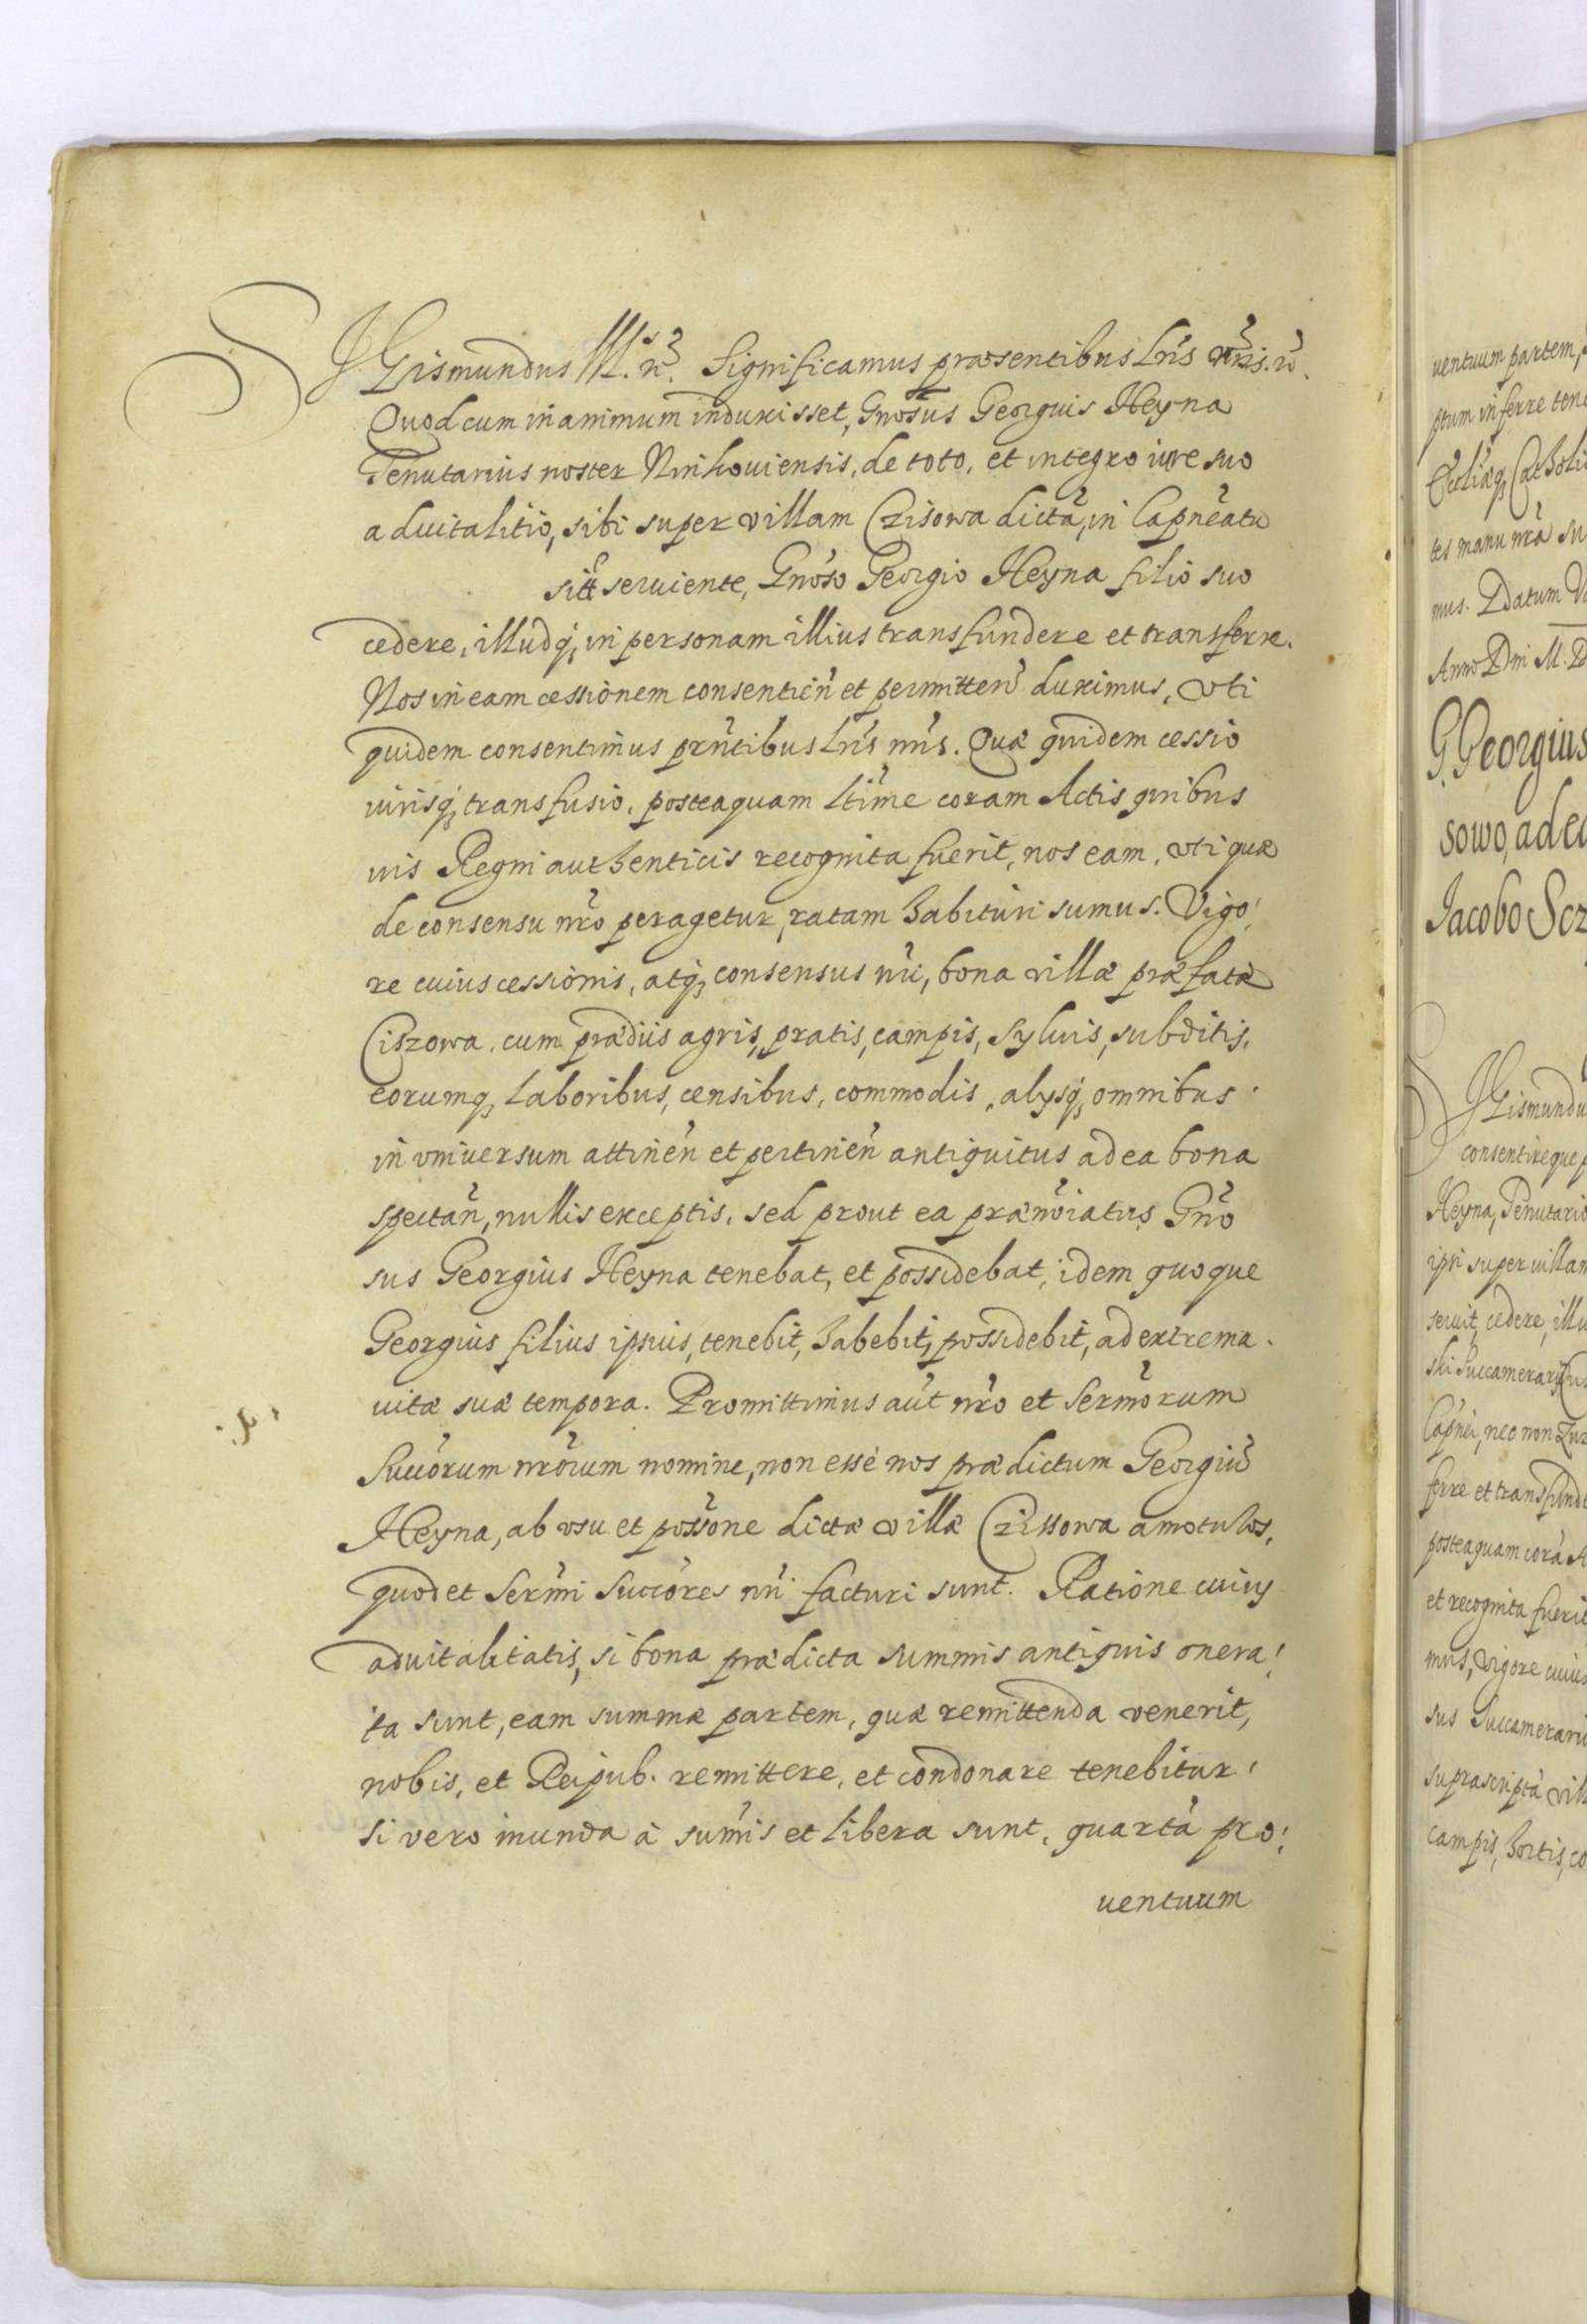 SIGismundus III. Significamus præsentibus Lris
Quod cum in animum induxisset, Gnosus Georgius Heyna
Tenutarius noster Ninhouiensis, de toto, et integro iure suo
aduitalitio, sibi super villam Czisowa dictã, in Capneatu
serviente, Gnoso Georgio Heyna filio suo
cedere, illudq, in personam illius transfundere et transferre.
Nos in eam cessionem consentien et permitten duximus, vti
quidem consentimus prntibus Lris nris. Quæ quidem cessio
iurisq, transfusio, posteaquam Ltime coram Actis quibus
uis Regni authenticis recognita fuerit, nos eam, vti quæ
de consensu nro peragetur, ratam habituri sumus. Vigo
re cuius cessionis, atq, consensus nri, bona villæ præfatæ
Ciszowa, cum prædiis agris, pratis, campis, syluis, subditis,
eorumq, laboribus, censibus, commodis, alysq, omnibus
in vniuersum attinen et pertinen antiquitus ad ea bona
spectan, nullis exceptis, sed prout ea prænoiatus Gno
sus Georgius Heyna tenebat, et possidebat, idem quoque
Georgius filius ipsius, tenebit, habebit, possidebit, ad extrema
uitæ suæ tempora. Promittimus aut nro et Sermorum
Succorum nrorum nomine, non esse nos prædictum Georgiũ
Heyna, ab vsu et possone dictæ villæ Czissowa amoturos,
quod et Sermi Succores nri facturi sunt. Ratione cuius
aduitalitatis, si bona prædicta summis antiquis onera
ta sunt, eam summæ partem, quæ remittenda venerit,
nobis, et Reipub. remittere, et condonare tenebitur
si vero munda à sumis et libera sunt, quartã pro
uentuum
uentuum partem,
ptum inferre tene
tes manu nra su
mus. Datum
Anno Dni M. D
G. Georgius
sowo, ad
Jacobo Scz
SIGismundu
consentireque
Heyna, Tenutario
ipsi super uillam
seruit, cedere, illu
ski Succamerary
Capnei, nec non
ferre et transfund
posteaquam corã A
et recognita fuerit
mus, Vigore cuius
sus Succamerariu
suprascriptã vill
campis, hortis, co